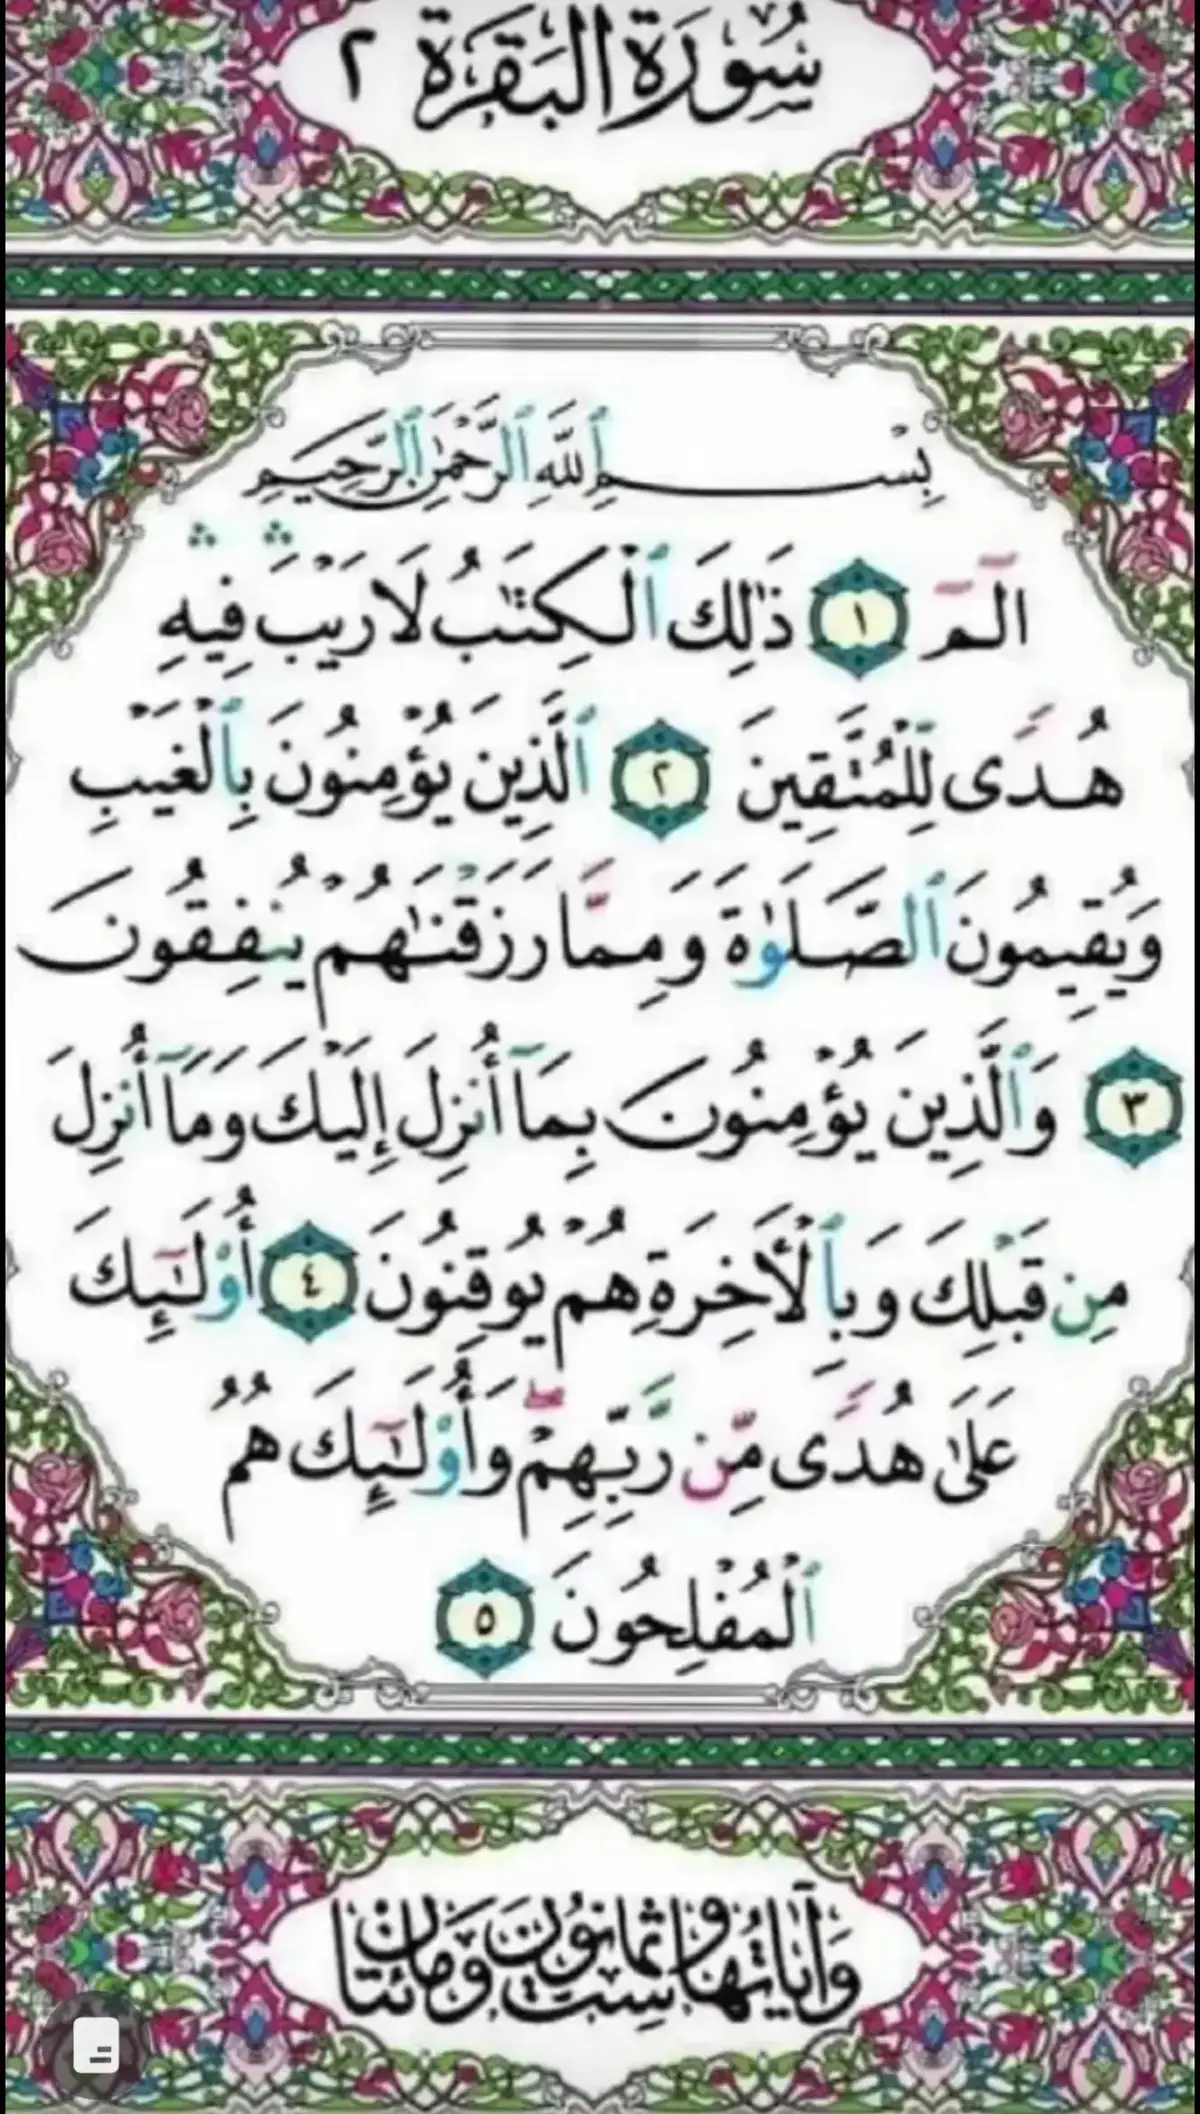 سُورَةُ البَقَرَةِ ٢
بِسْمِ ٱللَّهِ ٱلرَّحْمَٰنِ ٱلرَّحِيمِ
الٓمٓ ١ ذَٰلِكَ ٱلْكِتَٰبُ لَا رَيْبَۛ فِيهِۛ
هُدًى لِّلْمُتَّقِينَ ٢ ٱلَّذِينَ يُؤْمِنُونَ بِٱلْغَيْبِ
وَيُقِيمُونَ ٱلصَّلَوٰةَ وَمِمَّا رَزَقْنَٰهُمْ يُنفِقُونَ
٣ وَٱلَّذِينَ يُؤْمِنُونَ بِمَآ أُنزِلَ إِلَيْكَ وَمَآ أُنزِلَ
مِن قَبْلِكَ وَبِٱلْأَخِرَةِ هُمْ يُوقِنُونَ ٤ أُو۟لَٰٓئِكَ
عَلَىٰ هُدًى مِّن رَّبِّهِمْۖ وَأُو۟لَٰٓئِكَ هُمُ
ٱلْمُفْلِحُونَ ٥
وَآيَاتُهَا سِتٌّ وَثَمَانُونَ وَمِائَتَانِ